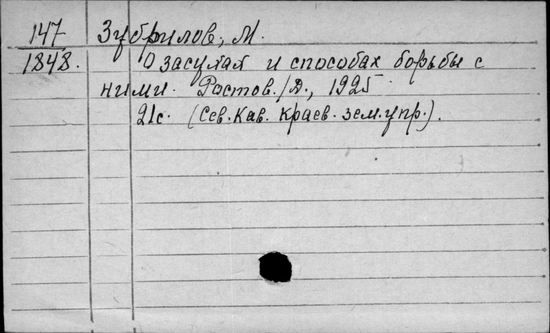 147 Зубрилов, М.
1848. О засухах и способах борьбы с
ними. Ростов./Д., 1925
21с. (Сев.Кав. Краев. зем.упр.).